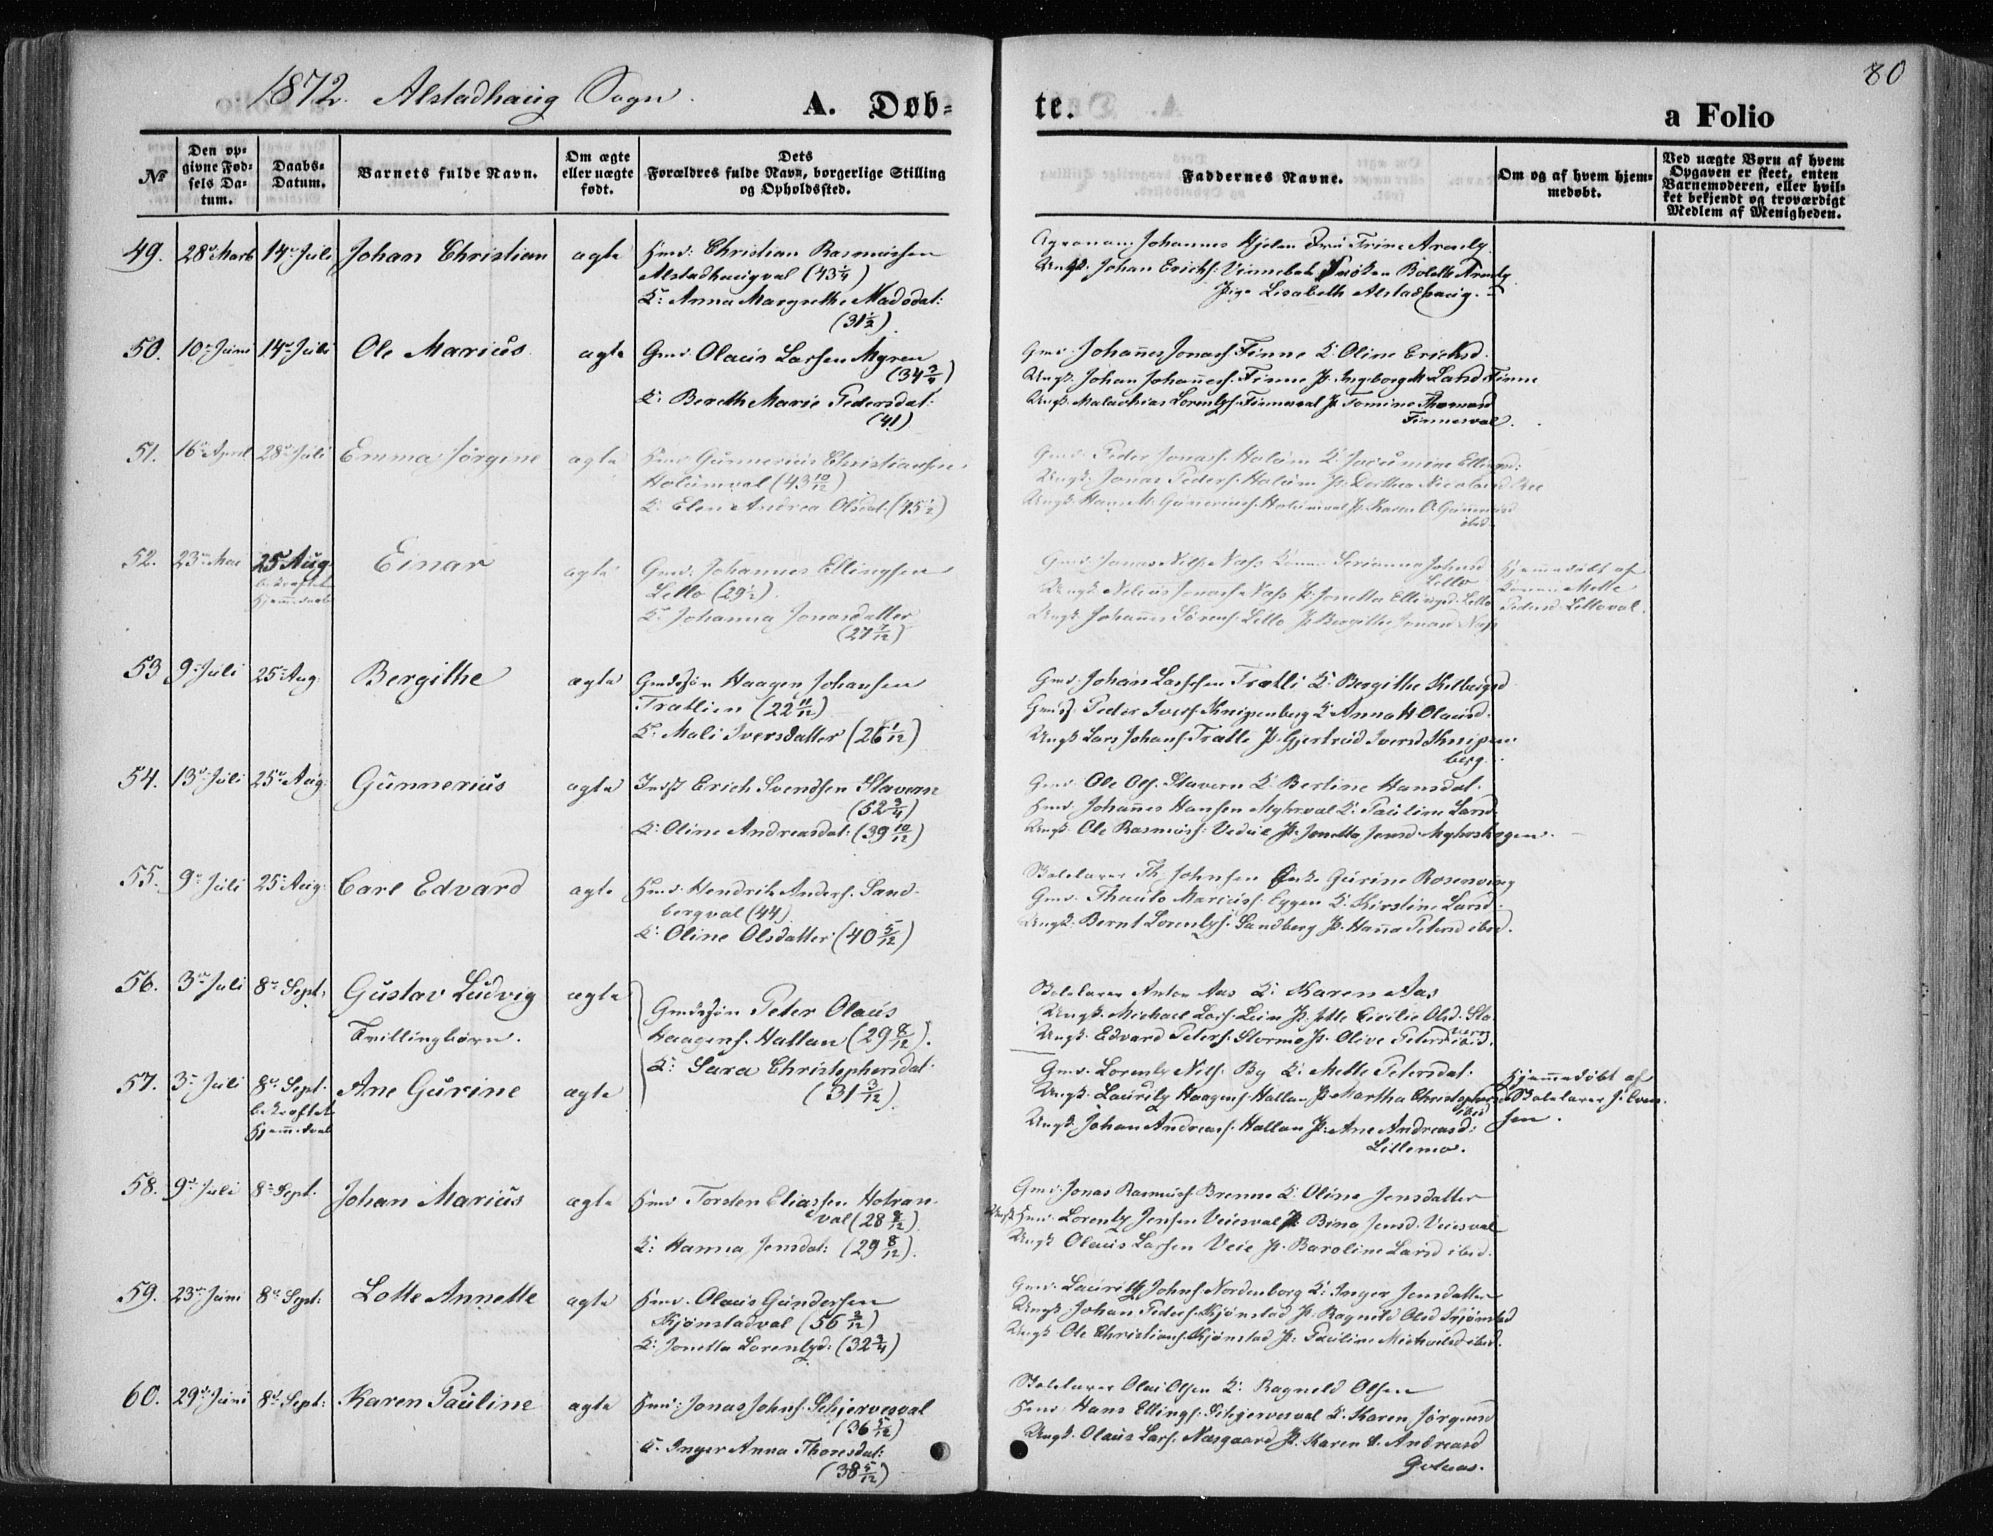 1872. Alstadhaug Sogn.
A. Døb-
te.
a Folio
80
No
Den op-
givne Fød-
sels Da-
tum.
Daabs-
Datum.
Barnets fulde Navn.
Om ægte
eller uægte
født.
Dets
Forældres fulde Navn, borgerlige Stilling
og Opholdssted.
Faddernes Navne.
Om og af hvem hjem-
medøbt.
Ved uægte Børn af hvem
Opgaven er skeet, enten
Barnemoderen, eller hvil-
ket bekjendt og troværdigt
Medlem af Menigheden.
49. 28de Marts 14de Juli Johan Christian ægte Hmd: Christian Rasmussen
Alstadhaugval (43 1/4)
K: Anna Margrethe Madsdat:
(31 1/2)
Agronom Johannes Hjelm Fru Trine
Ungk. Johan Erichs: Vinnebek Frøken Bolette
Pige Lisabeth Alstadhaug.
50. 10de Juni 14de Juli Ole Marius ægte Gmd: Olaus Larssen Myren
(34 3/4)
K: Bereth Marie Pedersdat:
(41)
Gmd: Johannes Jonass. Finne K: Oline Erichsd.
Ungk. Johan Johanness. Finne P. Ingeborg M. Larsd Finne
Ungk. Malachias Lorentzs. Finnesval P. Tomine Thomasd
Finnesval.
51. 16de April 28de Juli Emma Jørgine ægte Hmd: Gunnerius Christiansen
Holumval (43 10/12)
K: Elen Andrea Olsdat: (45 1/2)
Gmd: Peder Jonass. Holum K: Jocumine Ellingsd:
Ungk. Jonas Peders. Holum P: Dorthea Nicolaisd
Ungk. Hans M. Gunneriuss. Holumval P. Karen O. Gunneriusd
ibid.
52. 23de Mai 25 Aug. Einar ægte Gmd: Johannes Ellingsen
bekræftet
Hjemmedaab
Lello (29 1/2).
K: Johanna Jonasdatter
(27 7/12)
Gmd: Jonas Nilss. Næss Kone Serianna Johnsd
Lello
Ungk. Nelius Jonass. Næss P: Jonetta Ellingsd. Lello
Ungk: Johannes Sørens. Lello P. Bergithe Jonasd Næss
Hjemmedøbt af
Konen Mette
Pedersd. Lelloval.
53 9de Juli 25de Aug. Bergithe ægte Gmdssøn Haagen Johansen
Trætlien (22 11/12)
K: Mali Iversdatter (26 1/12)
Gmd: Johan Larssen Trætli K: Bergithe
Gmds. Peder Ivers. Knipenberg K: Anna M Olausd.
Ungk Lars Johans. Trætli P. Gjertrud Iversd Knipen-
berg.
54. 13de Juli 25de Aug: Gunnerius ægte Indst Erich Svendsen Stavern
(52 3/4)
K: Oline Andreasdat: (39 10/12)
Gmd: Ole Ols. Stavern K: Bertine Hansdat.
Hmd. Johannes Hansen Myhrval K. Pauline Larsd
Ungk: Ole Rasmuss: Vedul P. Jonetta Jensd. Myhrskogen.
55. 9de Juli 25de Aug: Carl Edvard ægte Hmd: Hendrik Anders. Sand-
bergval (44)
K: Oline Olsdatter (40 5/12)
Skolelærer Th. Johnsen Enke Gurine Rosenvinge
Gmd: Thaulo Mariuss: Eggen K: Kirstine Larsd.
Ungk: Bernt Lorentzs. Sandberg P. Hanna Petersd ibid.
56. 3de Juli 8de Sept: Gustav Ludvig ægte Gmdssøn Peter Olaus
Tvillingbørn.
Haagens. Hallan (29 8/12).
K: Sara Christophersdat.
(31 3/12).
Skolelærer Anton Aas K: Karen Aas
Ungk: Michael Lars. Lein P. Jette Cicilie Olsd.
Ungk. Edvard Peters. Stormo P. Olive Petersd ibid.
57. 3de Juli 8de Sept. Ane Gurine ægte
bekræftet
Hjemmedaab
Gmd: Lorentz Nils. By K: Mette Petersdat.
Ungk. Lauritz Haagens. Hallan P. Martha Christophersd
ibid
Ungk Johan Andreass. Hallan P: Ane Andreasd:
Lillemo.
Hjemmedøbt af
Skolelærer
sen.
58. 9de Juli 8de Sept. Johan Marius ægte Hmd Torsten Eliassen Hotran-
val (28 8/12).
K: Hanna Jensdat: (29 8/12).
Gmd: Jonas Rasmuss. Brenne K: Oline Jensdatter
Hmd: Lorentz Jensen Veiesval P. Bina Jensd: Veiesval
Ungk: Olaus Larsen Veie P. Karoline Larsd ibid.
59. 23de Juni 8de Sept: Lotte Annette ægte Hmd: Olaus Gundersen
Skjønstadval (56 3/12)
K: Jonetta Lorentzd: (32 3/4)
Gmd: Lauritz Johns. Nordenborg K: Inger Jensdatter
Ungk: Johan Peders. Skjønstad P. Ragnild Olsd Skjønstad
Ungk: Ole Christians. Skjønstad P: Pauline Michaelsd ibid.
60. 29de Juni 8de Sept: Karen Pauline ægte Hmd: Jonas Johns. Schjervesval
(36 5/12)
K: Inger Anna Thoresdat:
(38 5/12)
Skolelærer Olai Olsen K: Ragnild Olsen
Hmd: Hans Ellings. Schjervesval K: Karen Jørgensd
Ungk: Olaus Lars. Næsgaard P. Karen A. Andreasd